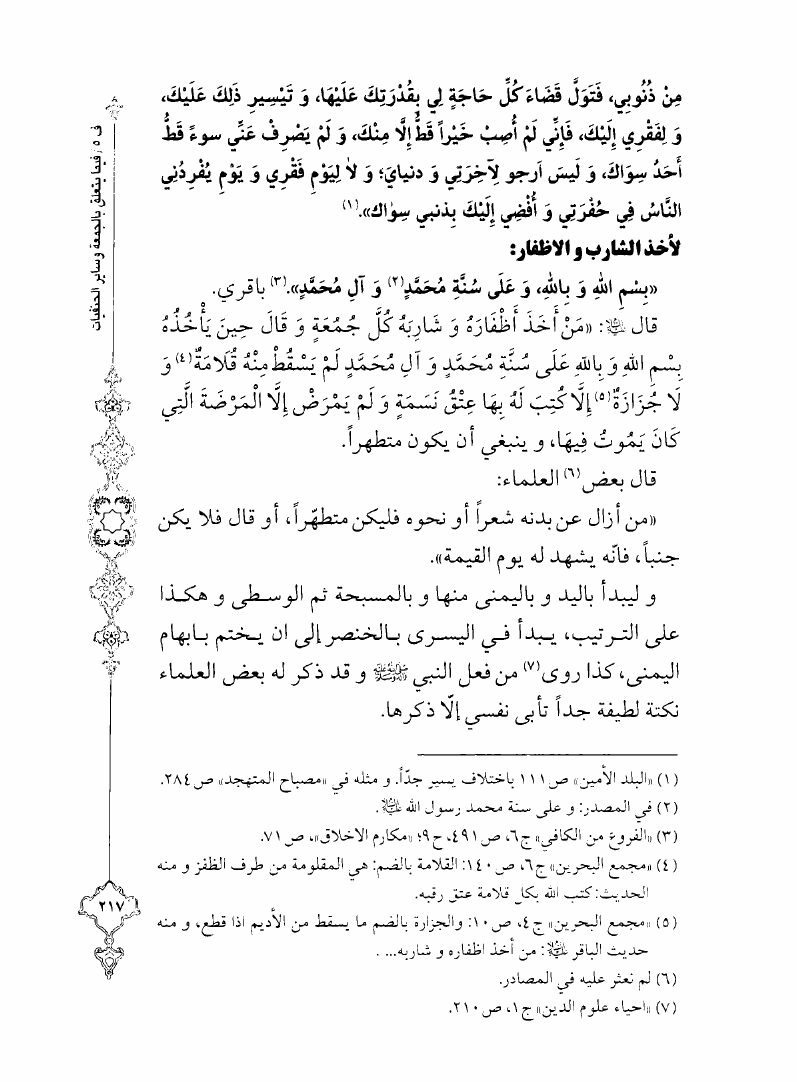 مِنْ ذُنُوبِي، فَتَوَلَّ قَضَاءَ كُلِّ حَاجَةٍ لِي بِقُدْرَتِكَ عَلَيْهَا، وَ تَيْسِيرِ ذَلِكَ عَلَيْكَ،
وَ لِفَقْرِي إِلَيْكَ، فَإِنِّي لَمْ أُصِبْ خَيْراً قَطُّ إِلَّا مِنْكَ، وَ لَمْ يَصْرِفْ عَنِّي سوءً قَطُّ
أَحَدُ سِوَاكَ، وَ لَيسَ اَرجو لِآخِرَتِي وَ دنيايَ؛ وَ لاٰ لِيَوْمِ فَقْرِي وَ يَوْمِ يُفْرِدُنِي
النَّاسُ فِي حُفْرَتِي وَ أُفْضِي إِلَيْكَ بِذنبي سِوٰاك».(١)
لأخذ الشارب و الاظفار:
«بِسْمِ اللهِ وَ بِاللهِ، وَ عَلَى سُنَّةِ مُحَمَّدٍ(٢) وَ آلِ مُحَمَّدٍ».(٣) باقري.
قال ﷺ: «مَنْ أَخَذَ أَظْفَارَهُ وَ شَارِبَهُ كُلَّ جُمُعَةٍ وَ قَالَ حِينَ يَأْخُذُهُ
بِسْمِ اللهِ وَ بِاللهِ عَلَى سُنَّةِ مُحَمَّدٍ وَ آلِ مُحَمَّدٍ لَمْ يَسْقُطْ مِنْهُ قُلَامَةٌ(٤) وَ
لَا جُزَازَةٌ(٥) إِلَّا كُتِبَ لَهُ بِهَا عِتْقُ نَسَمَةٍ وَ لَمْ يَمْرَضْ إِلَّا الْمَرْضَةَ الَّتِي
كَانَ يَمُوتُ فِيهَا، و ينبغي أن يكون متطهراً.
قال بعض(٦) العلماء:
«من أزال عن بدنه شعراً أو نحوه فليكن متطهّراً، أو قال فلا يكن
جنباً، فانّه يشهد له يوم القيمة».
و ليبدأ باليد و باليمنى منها و بالمسبحة ثم الوسطى و هكذا
على الترتيب، يبدأ في اليسرى بالخنصر إلى ان يختم بابهام
اليمنى، كذا روى(٧) من فعل النبي ﷺ و قد ذكر له بعض العلماء
نكتة لطيفة جداً تأبى نفسي إلّا ذكرها.
(١) «البلد الأمين» ص١١١ باختلاف يسير جدّاً. و مثله في «مصباح المتهجد» ص٢٨٤.
(٢) في المصدر: و على سنة محمد رسول الله ﷺ.
(٣) «الفروع من الكافي» ج٦، ص٤٩١، ح٩؛ «مكارم الاخلاق»، ص٧١.
(٤) «مجمع البحرين» ج٦، ص١٤٠: القلامة بالضم: هي المقلومة من طرف الظفر و منه
الحديث: كتب الله بكل قلامة عتق رقبه.
(٥) «مجمع البحرين» ج٤، ص١٠: والجزازة بالضم ما يسقط من الأديم اذا قطع، و منه
حديث الباقر : من أخذ اظفاره و شاربه... .
(٦) لم نعثر عليه في المصادر.
(٧) «احياء علوم الدين» ج١، ص٢١٠.
ف ٥ / فيما يتعلق بالجمعة وساير الحنفيات
٢١٧